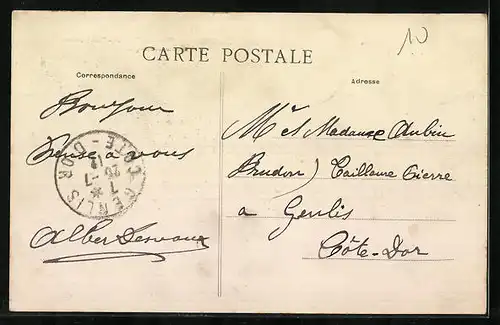 10
CARTE POSTALE
Correspondance
Adresse
Bonjour
Pense a vous
Albert
Mr et Madame Aubin
Brudon) Tailleure Pierre
a Genlis
Côte-Dor
GENLIS CÔTE-D'OR
7 * 26 -7